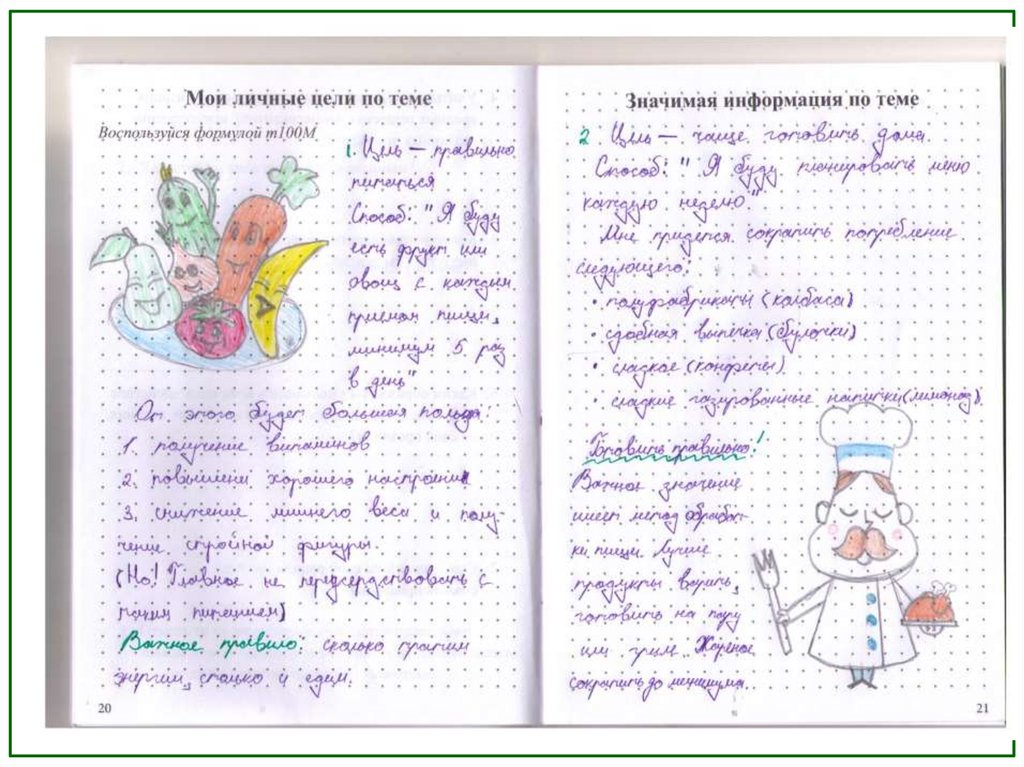 Мои личные цели по теме
Воспользуйся формулой m100M
1. Цель — правильно
питаться
Способ: "Я буду
есть фрукт или
овощ с каждым
приемом пищи,
минимум 5 раз
в день"
От этого будет большая польза:
1. получение витаминов
2. повышени хорошего настроения
3. снижение лишнего веса и полу-
чение стройной фигуры.
(Но! Главное не переусердствовать с
таким питанием)
Важное правило: сколько тратим
энергии, столько и едим.
20
Значимая информация по теме
2 Цель — чаще готовить дома.
Способ: "Я буду планировать меню
каждую неделю."
Мне придется сократить потребление
следующего:
• полуфабрикаты (колбаса)
• сдобная выпечка (булочки)
• сладкое (конфеты)
• сладкие газированные напитки (лимонад)
Готовить правильно!
Важное значение
имеет метод обработ-
ки пищи. Лучше
продукты варить,
готовить на пару
или гриле. Жареное
сократить до минимума.
21